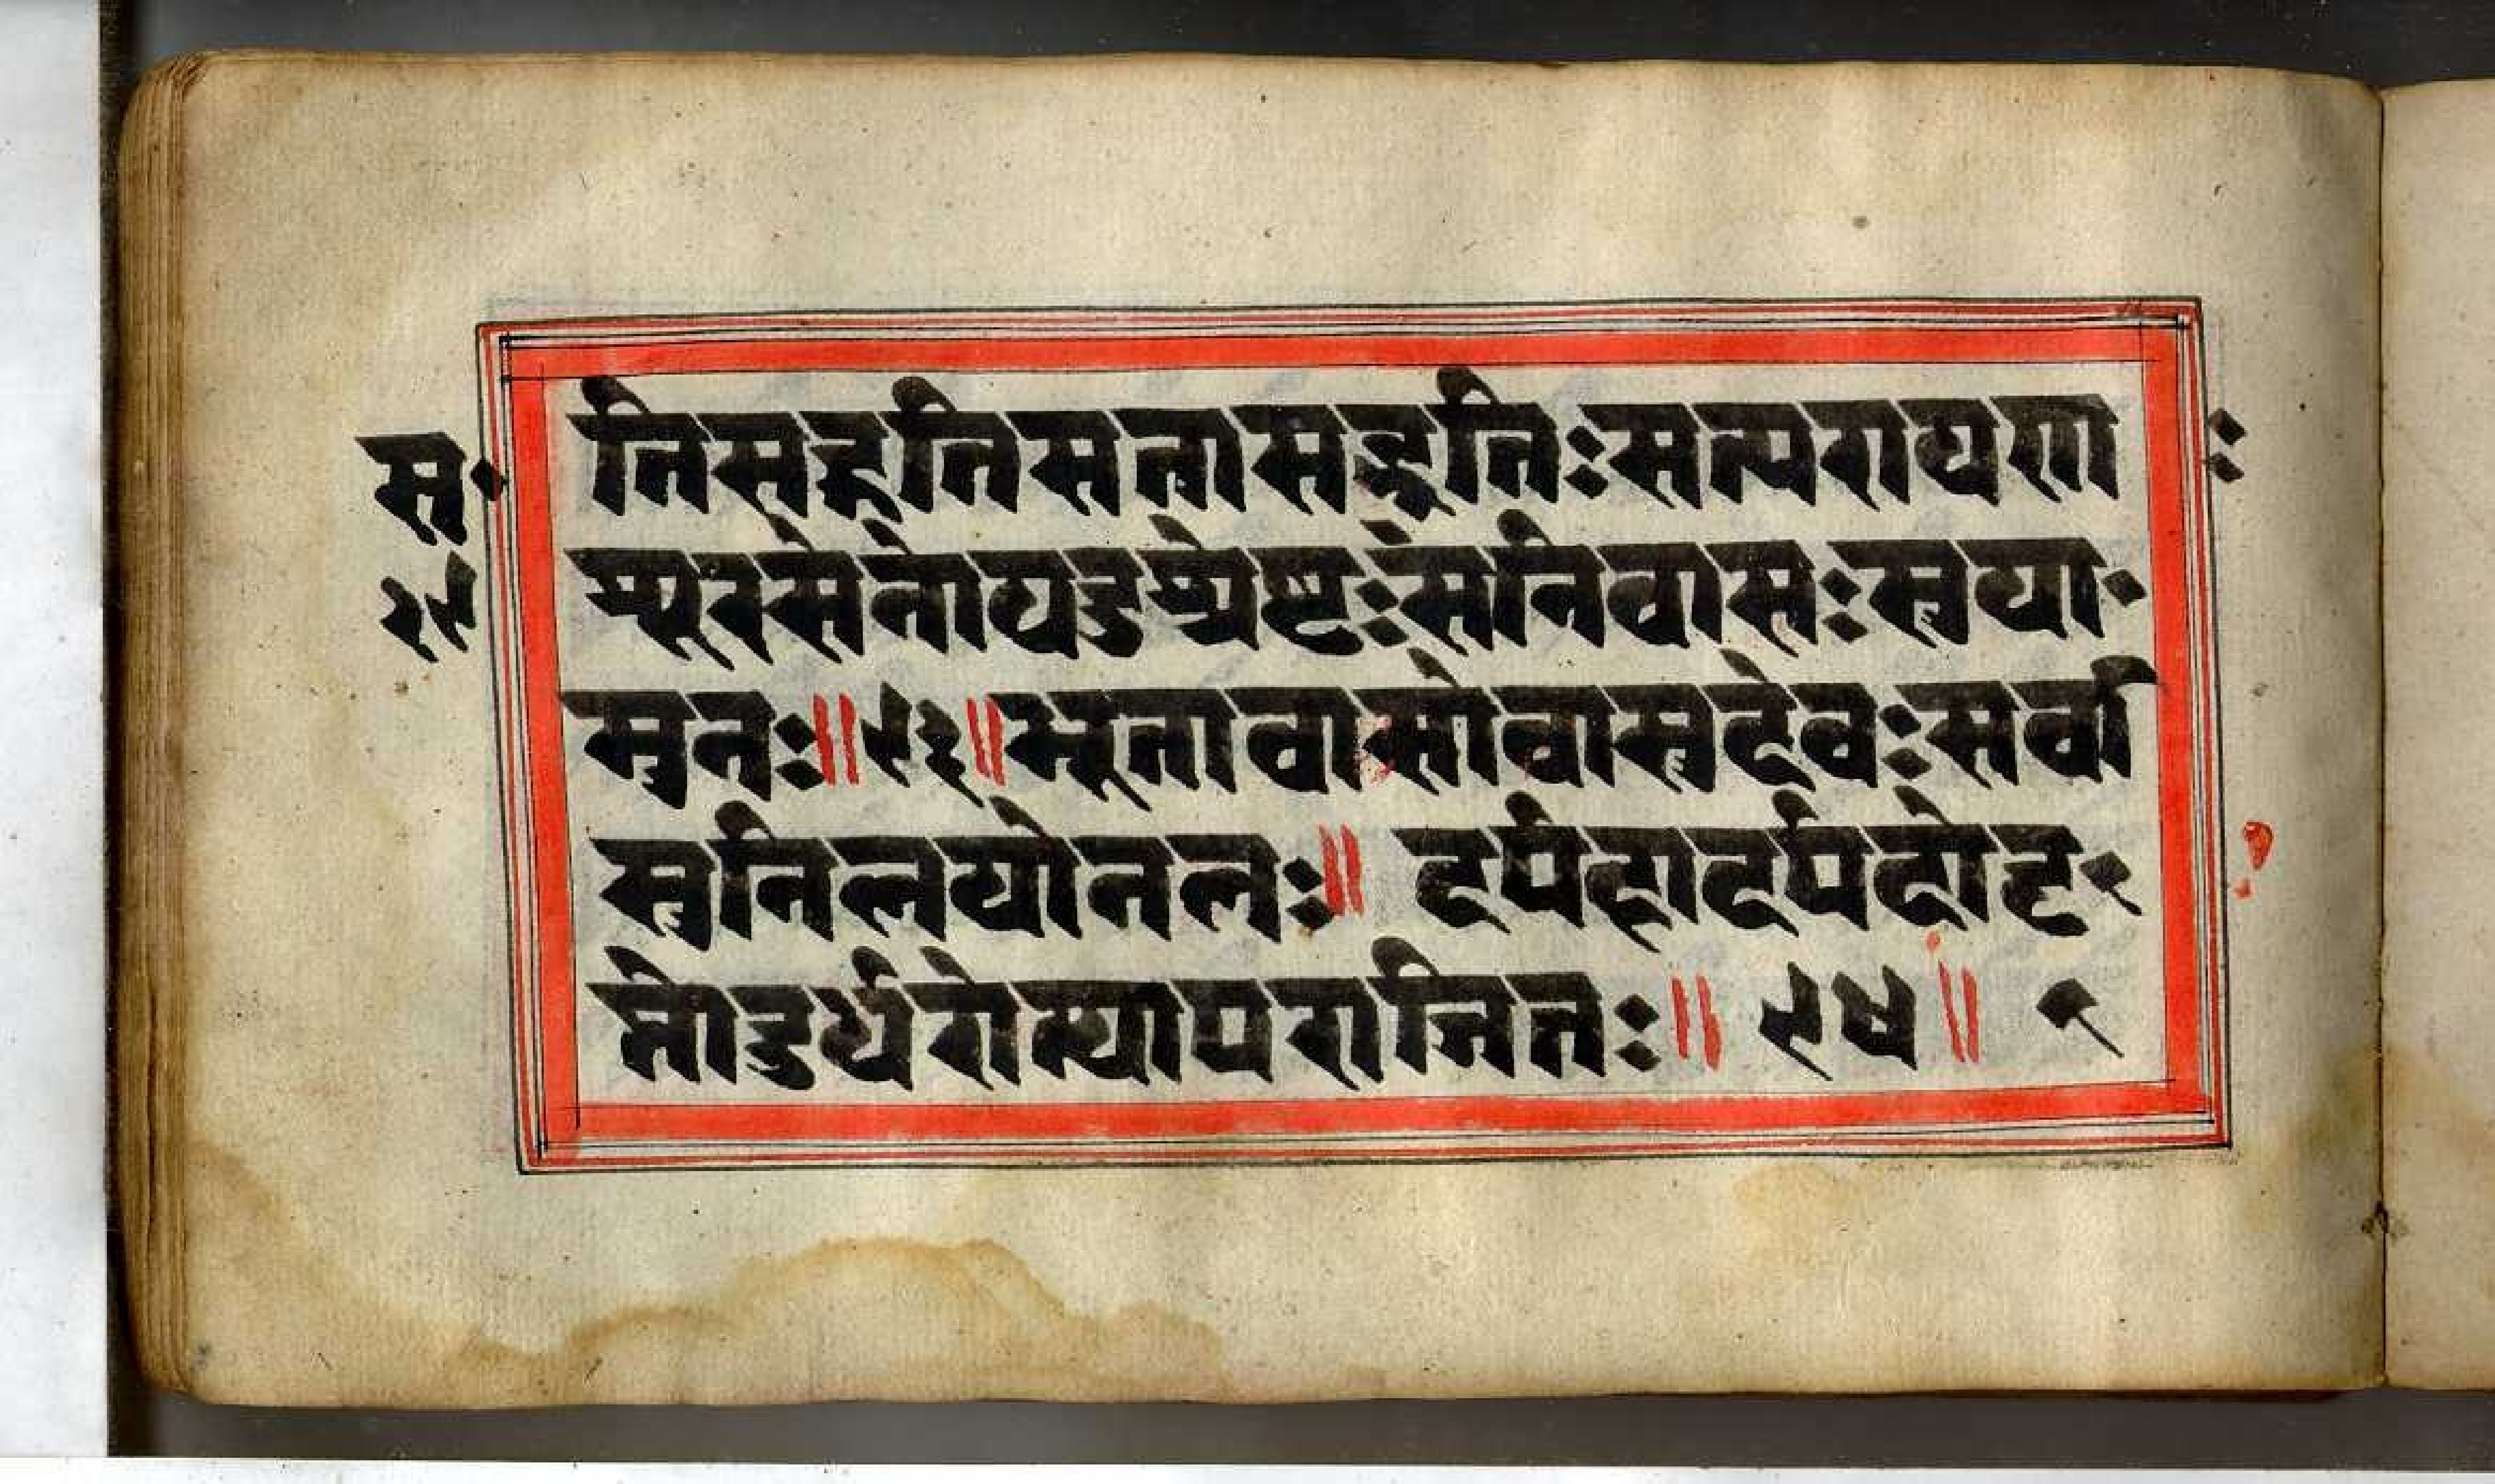 स॰
२९
तिसत्कृतिसत्तासद्भूतिःसत्परायणः
शूरसेनोयदुश्रेष्टःसंनिवासःसुया॰
मुनः॥ ॥भूतावासोवासुदेवःसर्वा
सुनिलयोनलः॥ दर्पहादर्पदोदृ॰
प्तोदुर्धरोथापराजितः॥ ॥